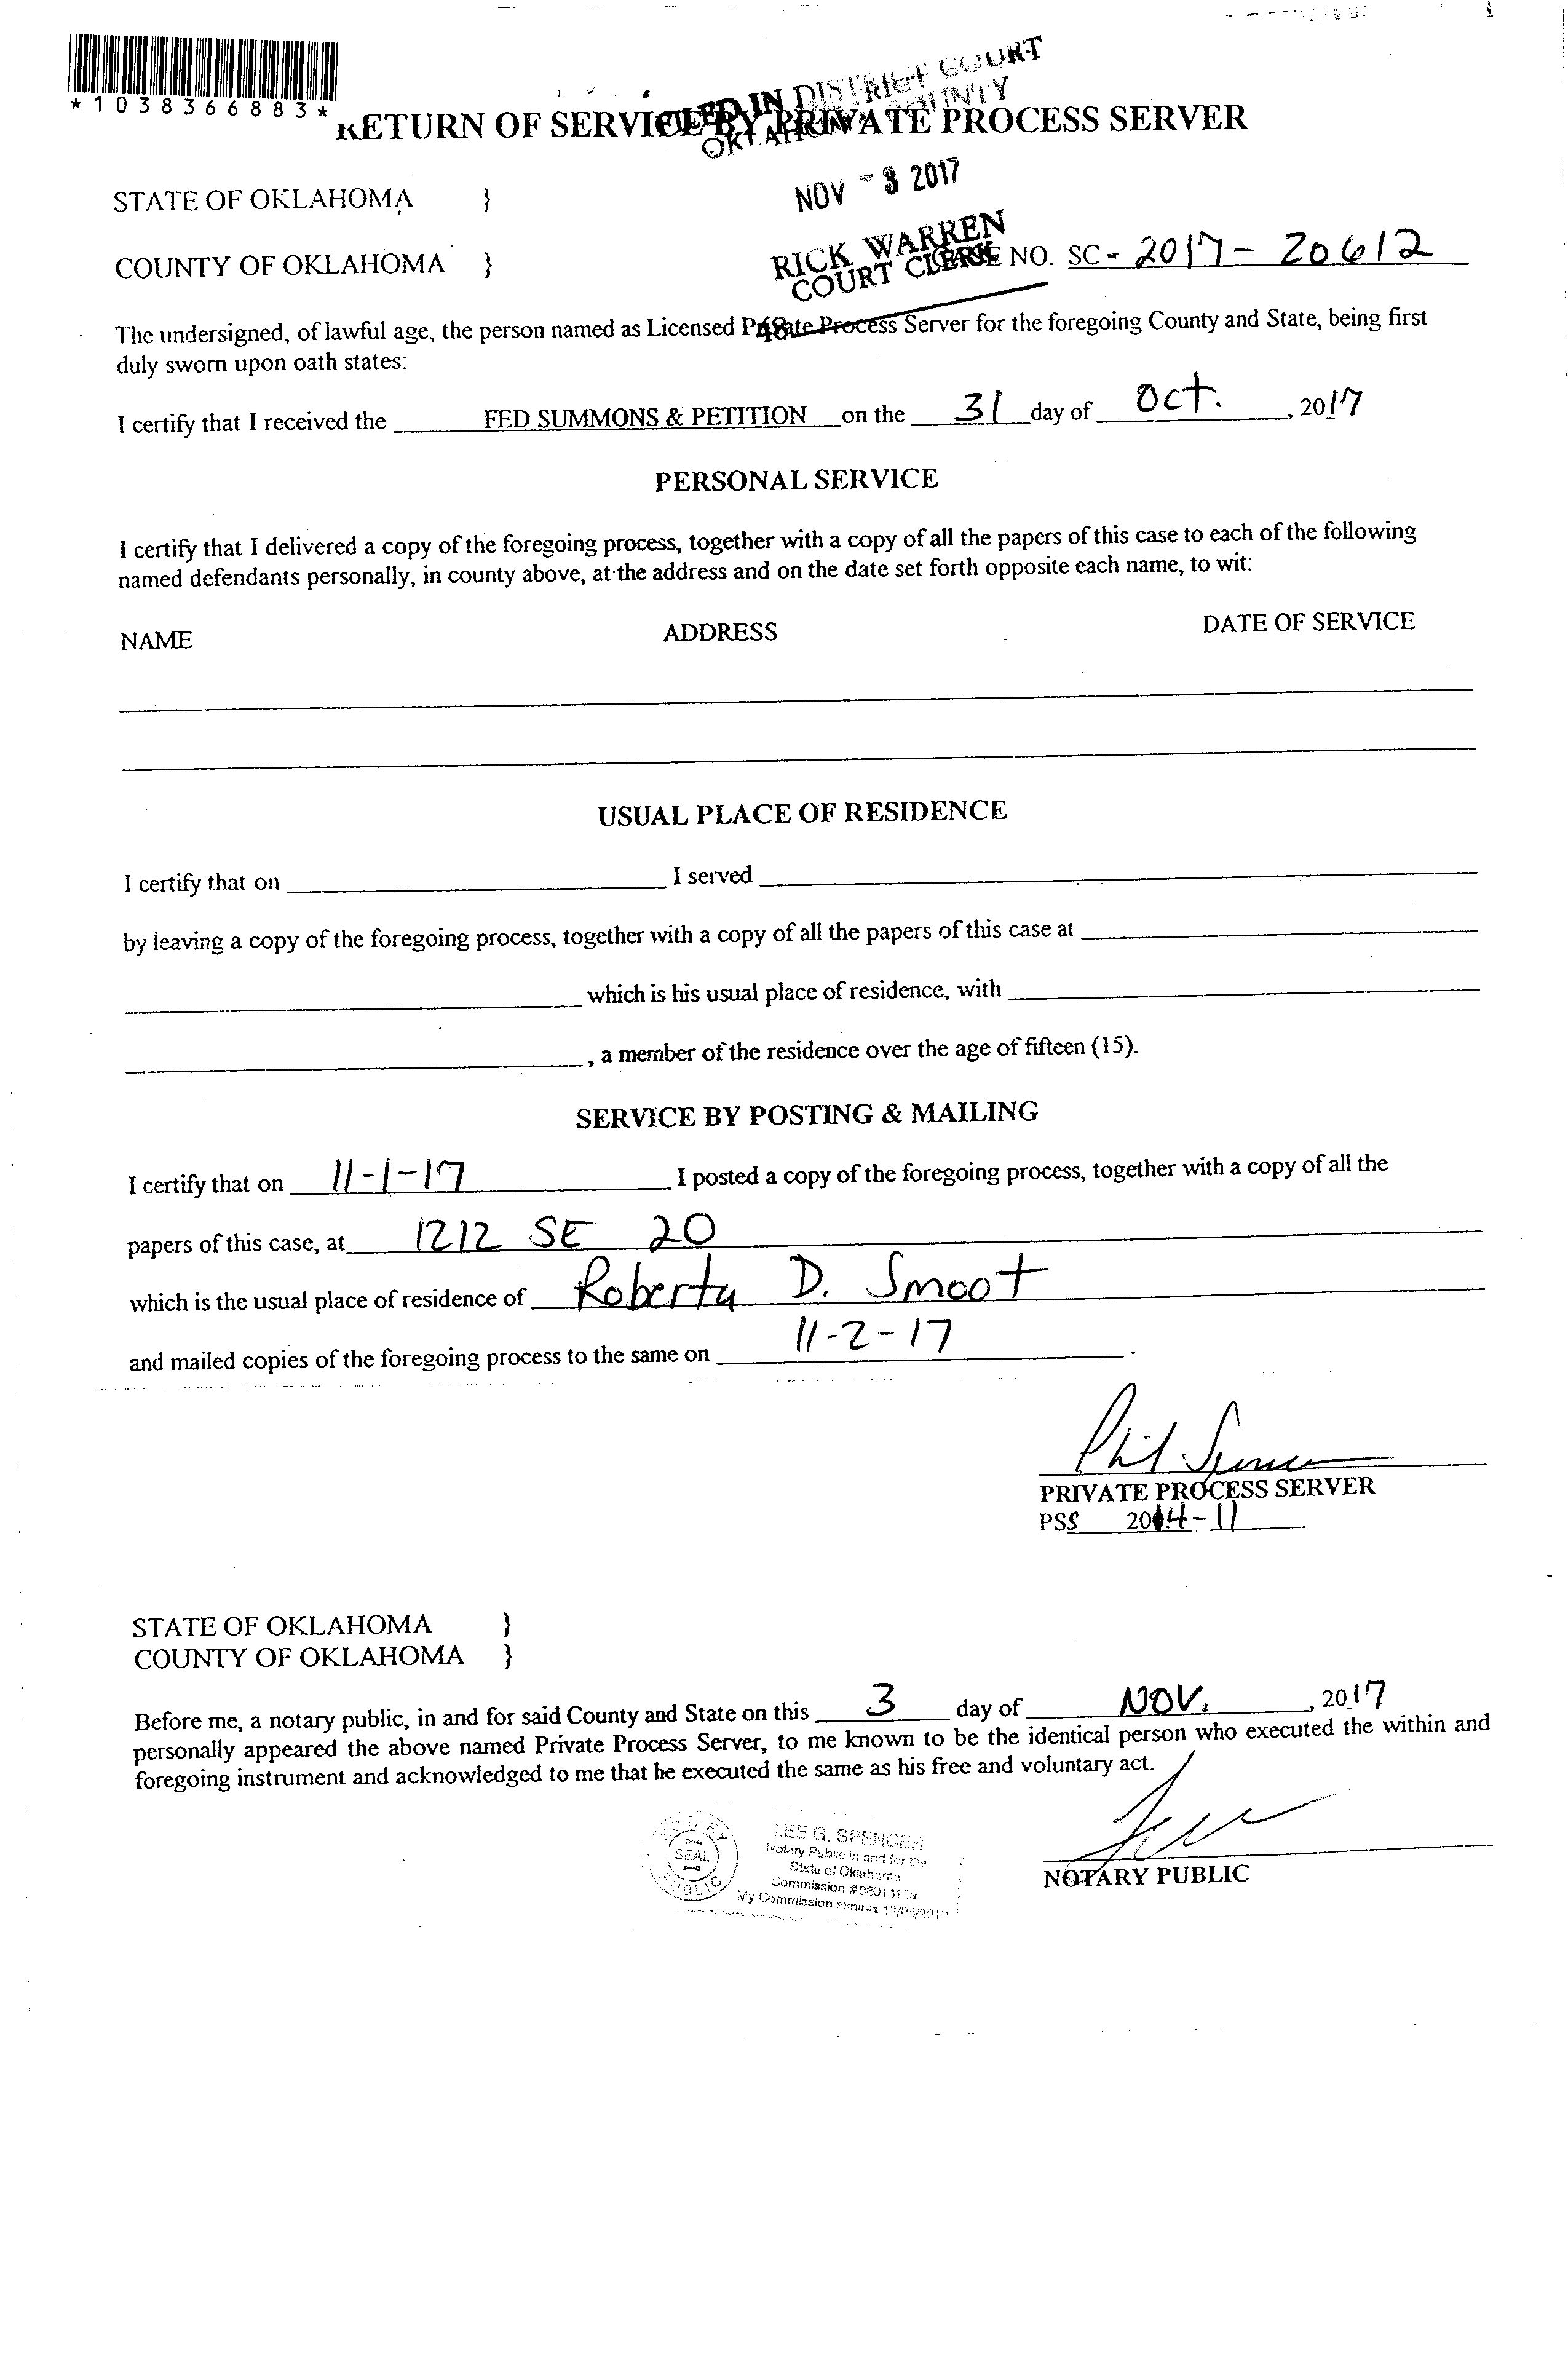 *1038366883*
FILED IN DISTRICT COURT
OKLAHOMA COUNTY
RETURN OF SERVICE BY PRIVATE PROCESS SERVER
NOV - 3 2017
STATE OF OKLAHOMA }
RICK WARREN
COURT CLERK
COUNTY OF OKLAHOMA } CASE NO. SC - 2017 - 20612
48
The undersigned, of lawful age, the person named as Licensed Private Process Server for the foregoing County and State, being first
duly sworn upon oath states:
I certify that I received the FED SUMMONS & PETITION on the 31 day of Oct. , 2017
PERSONAL SERVICE
I certify that I delivered a copy of the foregoing process, together with a copy of all the papers of this case to each of the following
named defendants personally, in county above, at the address and on the date set forth opposite each name, to wit:
NAME ADDRESS DATE OF SERVICE
USUAL PLACE OF RESIDENCE
I certify that on I served
by leaving a copy of the foregoing process, together with a copy of all the papers of this case at
which is his usual place of residence, with
, a member of the residence over the age of fifteen (15).
SERVICE BY POSTING & MAILING
I certify that on 11-1-17 I posted a copy of the foregoing process, together with a copy of all the
papers of this case, at 1212 SE 20
which is the usual place of residence of Roberta D. Smoot
and mailed copies of the foregoing process to the same on 11-2-17 .
PRIVATE PROCESS SERVER
PSS 2014-11
STATE OF OKLAHOMA }
COUNTY OF OKLAHOMA }
Before me, a notary public, in and for said County and State on this 3 day of NOV. , 2017
personally appeared the above named Private Process Server, to me known to be the identical person who executed the within and
foregoing instrument and acknowledged to me that he executed the same as his free and voluntary act.
NOTARY PUBLIC
SEAL
LEE G. SPENCER
Notary Public in and for the
State of Oklahoma
Commission
My Commission expires
NOTARY PUBLIC